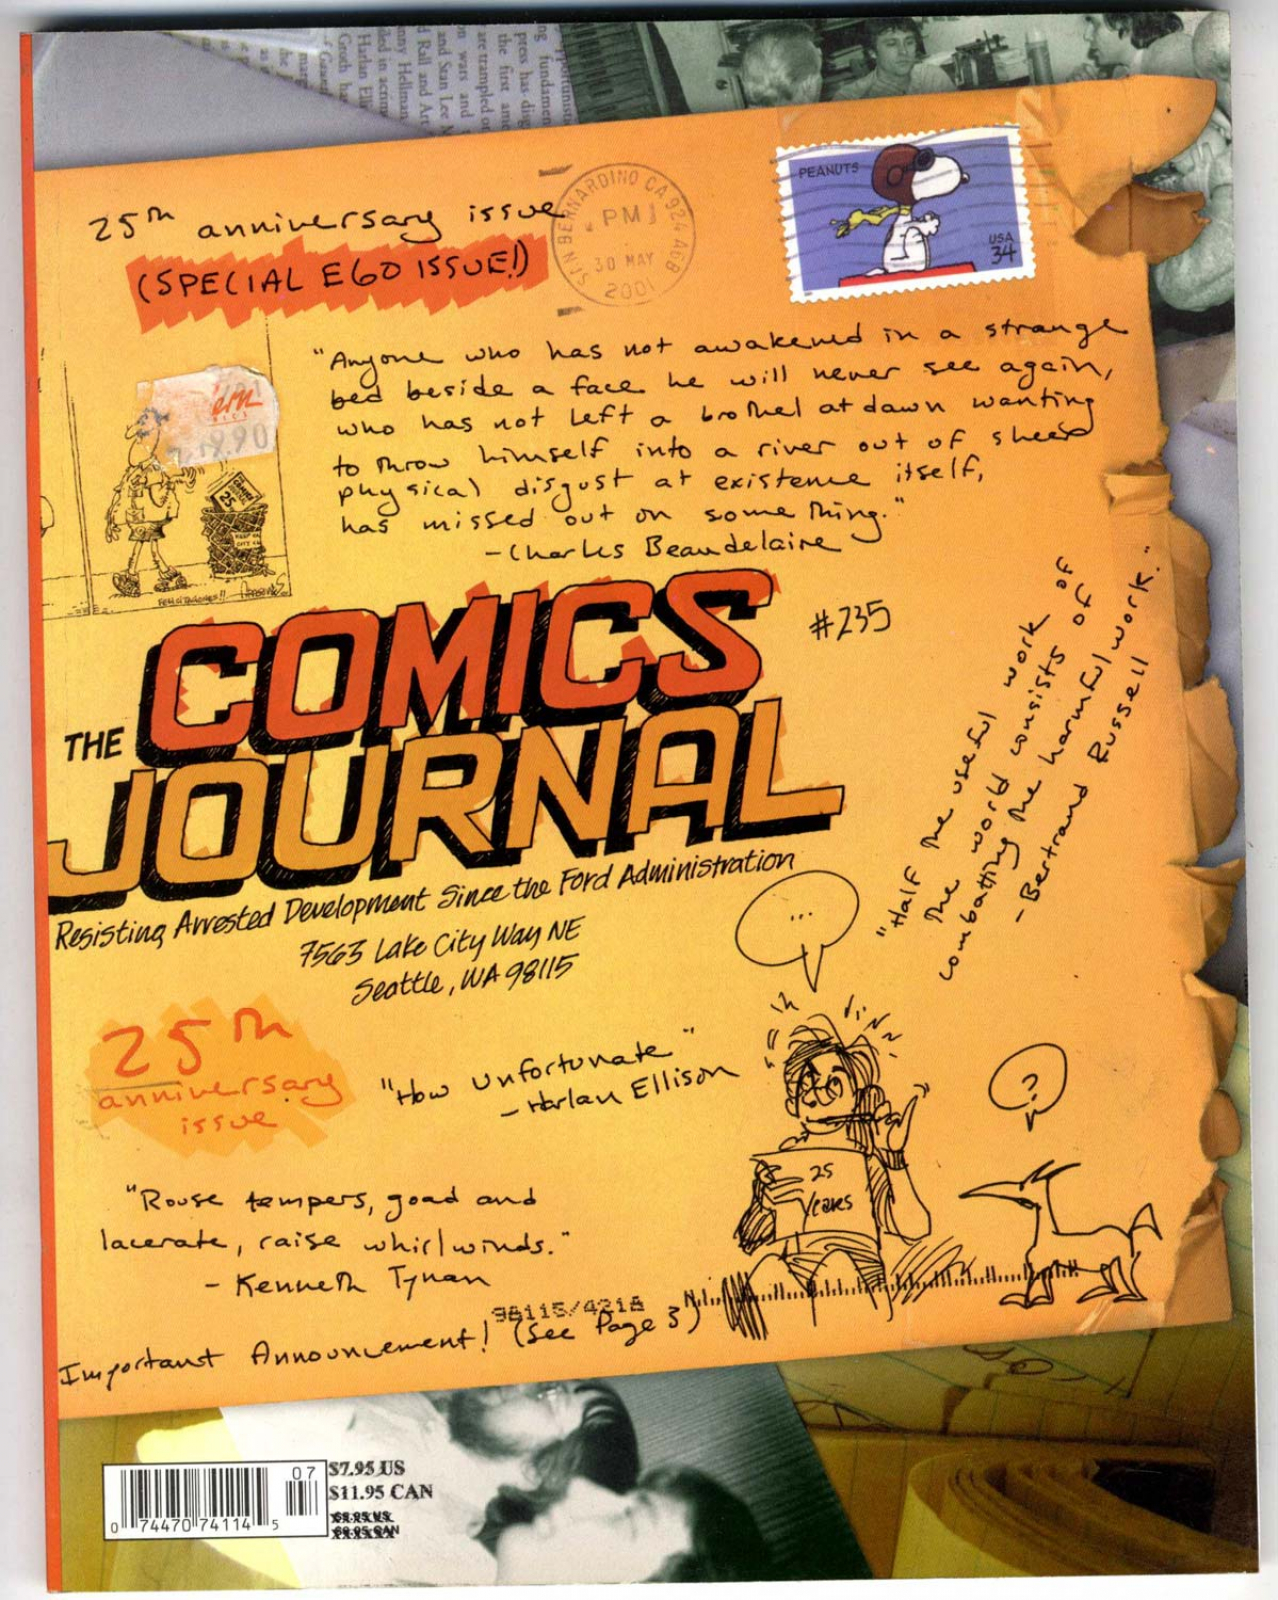 25th anniversary issue
(SPECIAL EGO ISSUE!)
SAN BERNARDINO CA 924 AGB
PM
30 MAY
2001
PEANUTS
USA
34
"Anyone who has not awakened in a strange
bed beside a face he will never see again,
who has not left a brothel at dawn wanting
to throw himself into a river out of sheer
physical disgust at existence itself,
has missed out on something."
-Charles Beaudelaire
9.90
25
THE COMICS
JOURNAL
#235
Resisting Arrested Development Since the Ford Administration
7563 Lake City Way NE
Seattle, WA 98115
"Half the useful work of
the world consists of
combatting the harmful work."
- Bertrand Russell
...
25th
anniversary
issue
"How Unfortunate"
- Harlan Ellison
?
25
Years
"Rouse tempers, goad and
lacerate, raise whirlwinds."
- Kenneth Tynan
98115/4218
Important Announcement! (See Page 3)
07
0 74470 74114 5
$7.95 US
$11.95 CAN